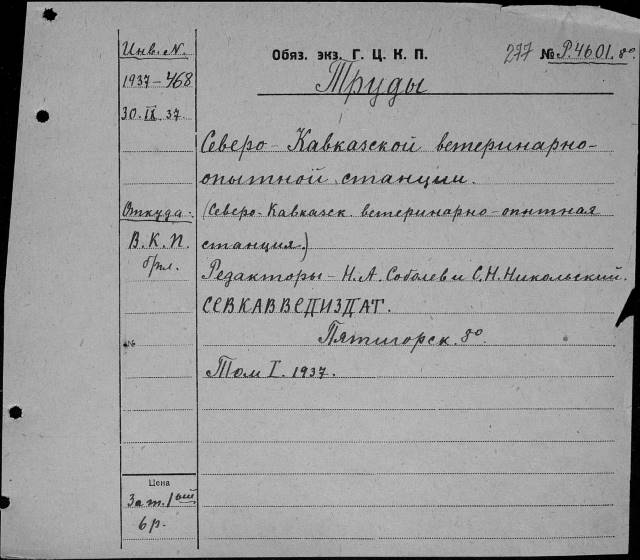 Инв. N.
1937-468
30. IX. 37.
Откуда:
В. К. П.
№
Цена
За т. 1ый
6 р.
Обяз. экз. Г. Ц. К. П.
277 № Р.4601. 8°.
Труды
Северо-Кавказской ветеринарно-
опытной станции.
(Северо-Кавказск. ветеринарно-опытная
станция.)
Редакторы - Н.А. Соболев и С.Н. Никольский.
СЕВКАВВЕДИЗДАТ.
Пятигорск. 8°.
Том I. 1937.